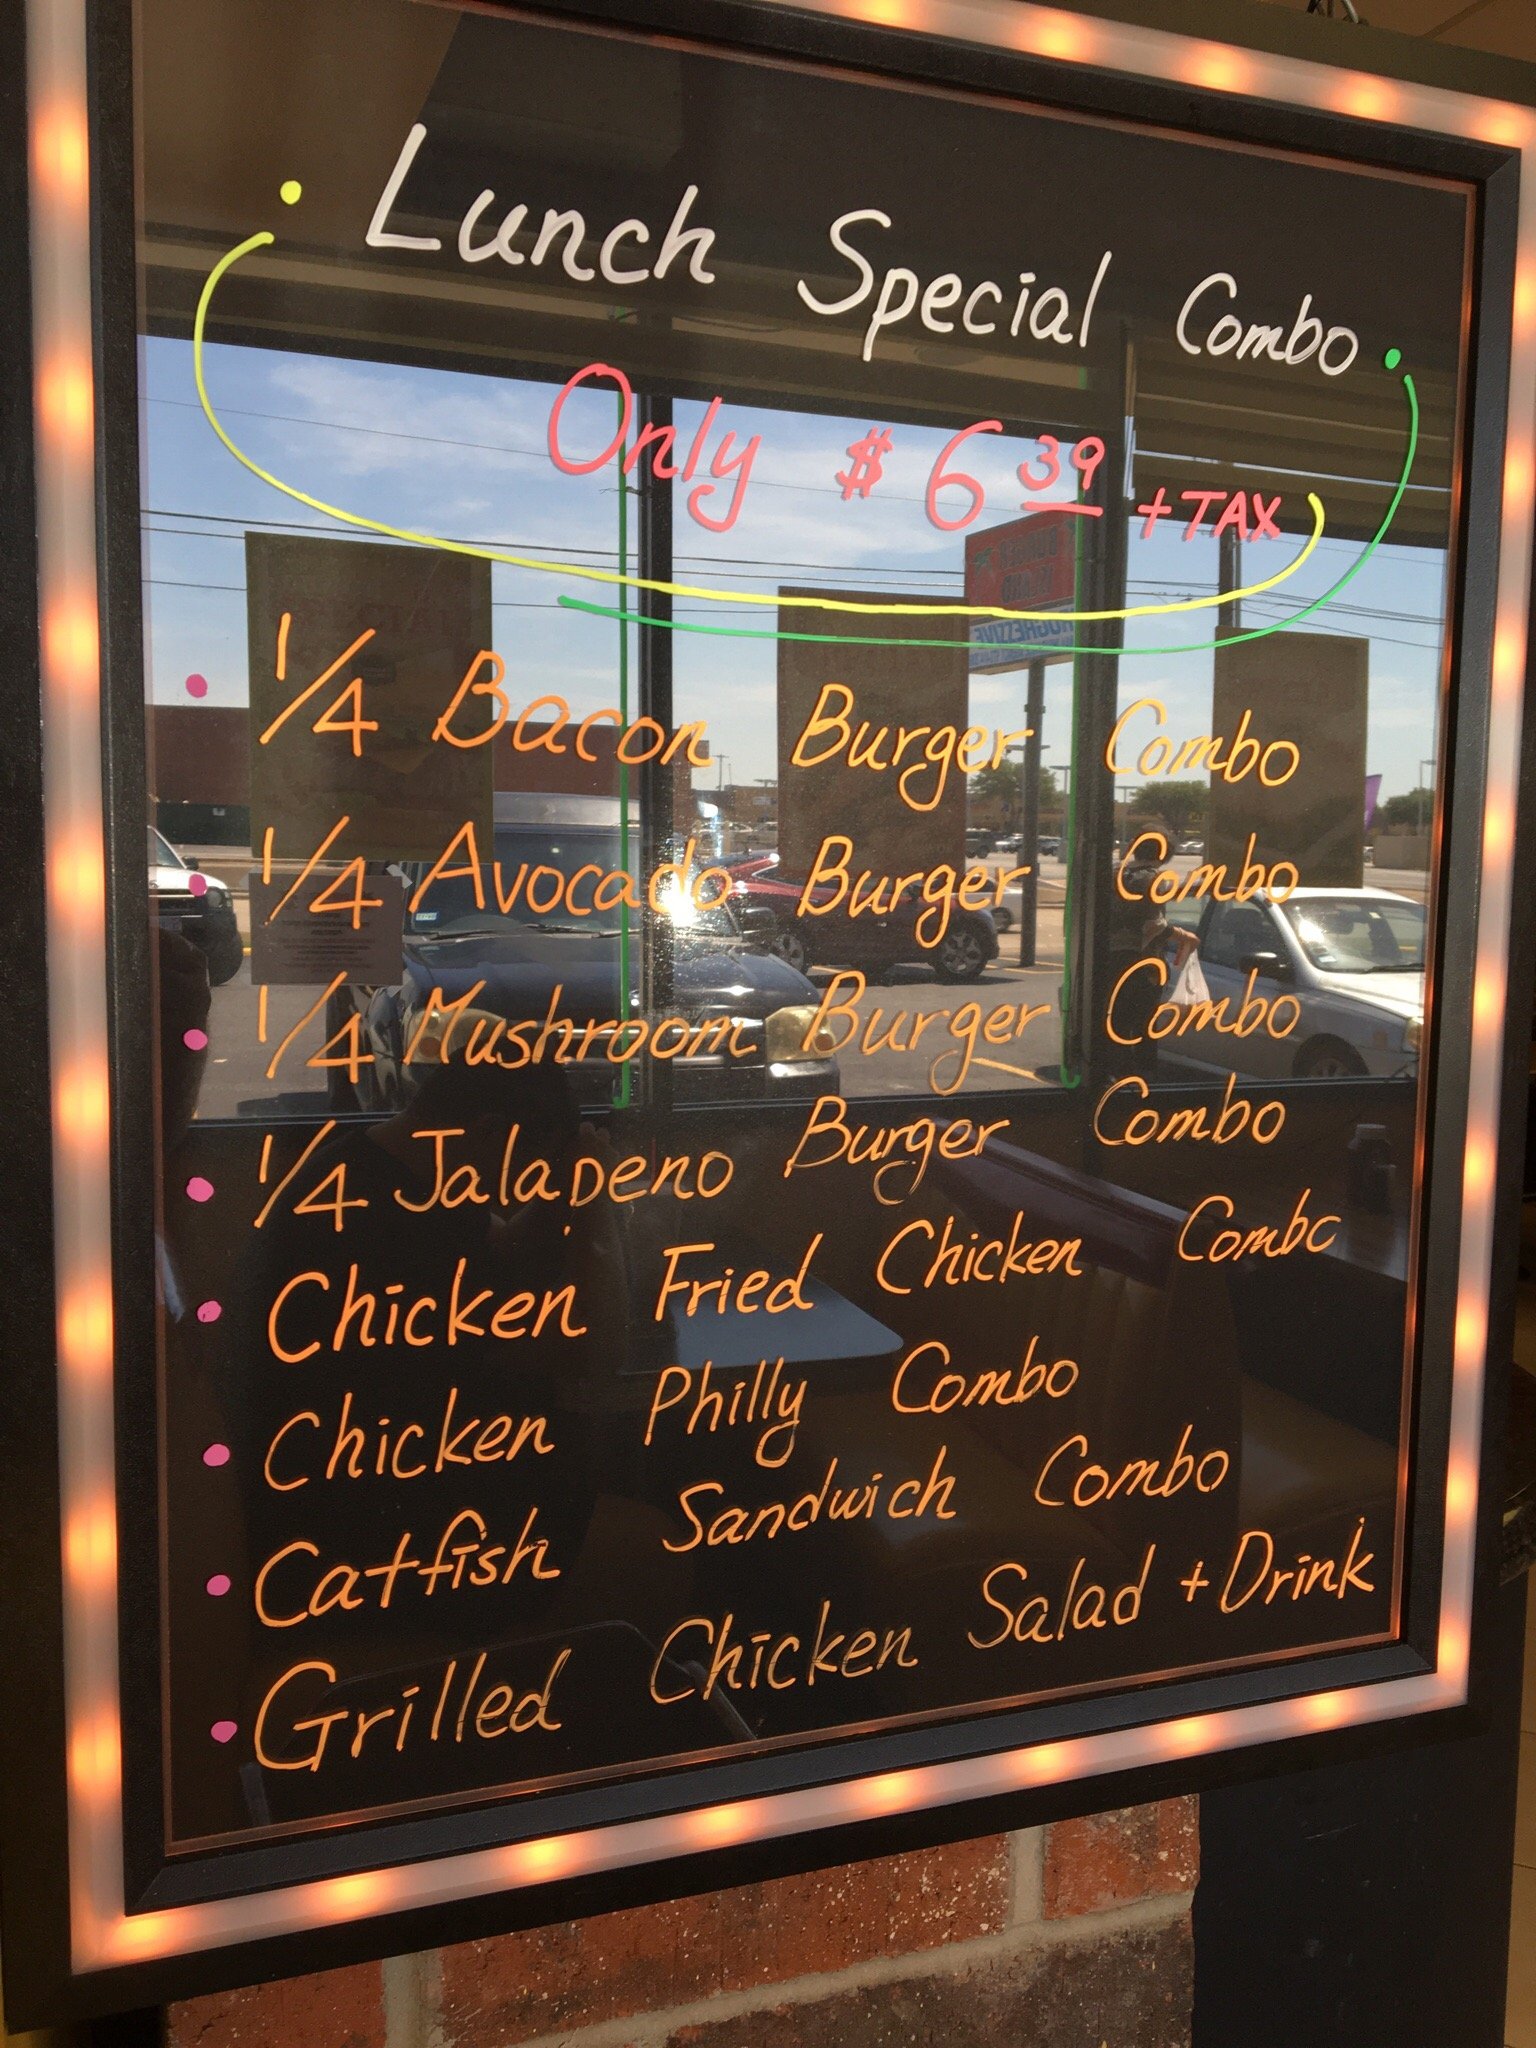 Lunch Special Combo
Only $6 39 + TAX
1/4 Bacon Burger Combo
1/4 Avocado Burger Combo
1/4 Mushroom Burger Combo
1/4 Jalapeno Burger Combo
Chicken Fried Chicken Combo
Chicken Philly Combo
Catfish Sandwich Combo
Grilled Chicken Salad + Drink
BURGER
ISLAND